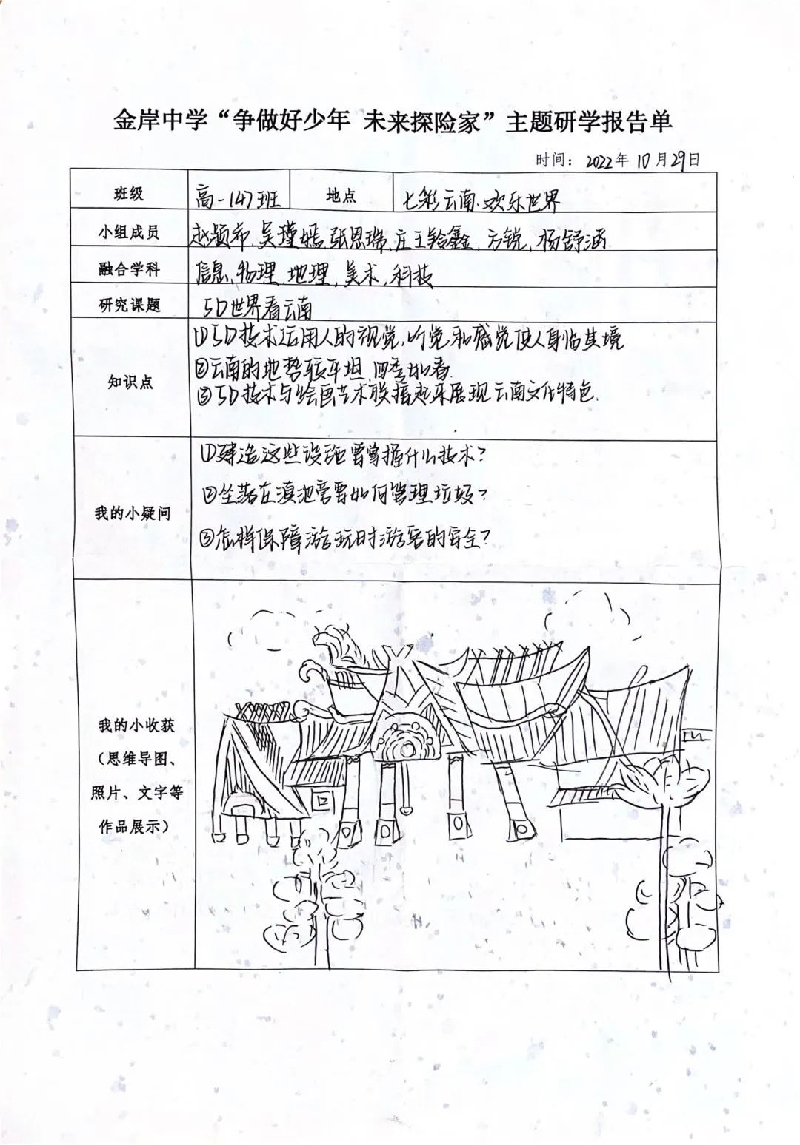 金岸中学“争做好少年 未来探险家”主题研学报告单
时间：2022年10月29日
班级 高一147班 地点 七彩云南·欢乐世界
小组成员 赵颖希,吴瑾嫣,张恩瑞,庄王铃鑫,方锐,杨舒涵
融合学科 信息,物理,地理,美术,科技
研究课题 5D世界看云南
知识点
①5D技术运用人的视觉,听觉和感觉使人身临其境
②云南的地势较平坦,四季如春.
③5D技术与绘画艺术联播起来展现云南文化特色.
我的小疑问
①建造这些设施要掌握什么技术?
②坐落在滇池旁要如何管理垃圾?
③怎样保障游玩时游客的安全?
我的小收获
（思维导图、
照片、文字等
作品展示）